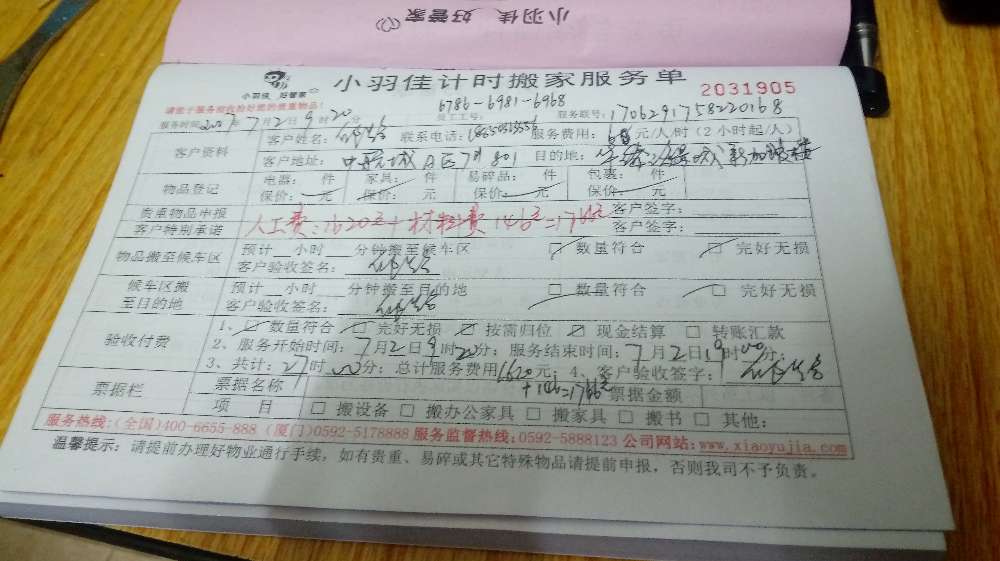 小羽佳 好管家
小羽佳 好管家
小羽佳计时搬家服务单
2031905
请您于服务前收捡好您的贵重物品!
6786-6981-6968
服务时间: 7月2日9时20分 员工工号: 服务联号: 1706291758220168
客户资料
客户姓名: 联系电话: 服务费用: 60元/人/时(2小时起/人)
客户地址: 城A区7# 801 目的地:
物品登记
电器: 件 家具: 件 易碎品: 件 包裹: 件
保价: 元 保价: 元 保价: 元 保价: 元
贵重物品申报 客户签字:
客户特别承诺 人工费:1620元+材料费146元=1766元 客户签字:
物品搬至候车区
预计 小时 分钟搬至候车区 □ 数量符合 □ 完好无损
客户验收签名:
候车区搬至目的地
预计 小时 分钟搬至目的地 □ 数量符合 □ 完好无损
客户验收签名:
验收付费
1、☑ 数量符合 □ 完好无损 ☑ 按需归位 ☑ 现金结算 □ 转账汇款
2、服务开始时间:7月2日9时20分;服务结束时间:7月2日19时00分;
3、共计:27时00分;总计服务费用1620元;4、客户验收签字:
+146=1766元
票据栏
票据名称 票据金额
项 目 □ 搬设备 □ 搬办公家具 □ 搬家具 □ 搬书 □ 其他:
服务热线:(全国)400-6655-888 (厦门)0592-5178888 服务监督热线:0592-5888123 公司网站:www.xiaoyujia.com
温馨提示:请提前办理好物业通行手续,如有贵重、易碎或其它特殊物品请提前申报,否则我司不予负责。